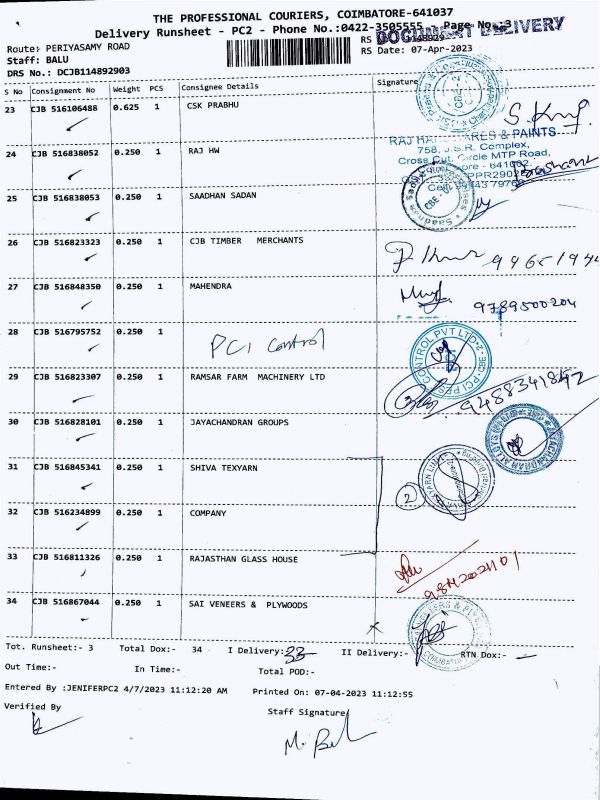 THE PROFESSIONAL COURIERS, COIMBATORE-641037
Delivery Runsheet - PC2 - Phone No.:0422-3505555 - Page No.:3
DOCUMENT DELIVERY
Route: PERIYASAMY ROAD
Staff: BALU
RS Date: 07-Apr-2023
DRS No.: DCJB114892903
S No Consignment No Weight PCS Consignee Details Signature
23 CJB 516106488 0.625 1 CSK PRABHU
RAJ HARDWARES & PAINTS
758, J.S.R. Complex,
Cross Cut, Circle MTP Road,
24 CJB 516838052 0.250 1 RAJ HW
25 CJB 516838053 0.250 1 SAADHAN SADAN
26 CJB 516823323 0.250 1 CJB TIMBER MERCHANTS
27 CJB 516848350 0.250 1 MAHENDRA
9789500204
28 CJB 516795752 0.250 1
PCI Control
29 CJB 516823307 0.250 1 RAMSAR FARM MACHINERY LTD
30 CJB 516828101 0.250 1 JAYACHANDRAN GROUPS
31 CJB 516845341 0.250 1 SHIVA TEXYARN
2
32 CJB 516234899 0.250 1 COMPANY
33 CJB 516811326 0.250 1 RAJASTHAN GLASS HOUSE
34 CJB 516867044 0.250 1 SAI VENEERS & PLYWOODS
Tot. Runsheet:- 3 Total Dox:- 34 I Delivery:- 33 II Delivery:- RTN Dox:-
Out Time:- In Time:- Total POD:-
Entered By :JENIFERPC2 4/7/2023 11:12:20 AM Printed On: 07-04-2023 11:12:55
Verified By Staff Signature